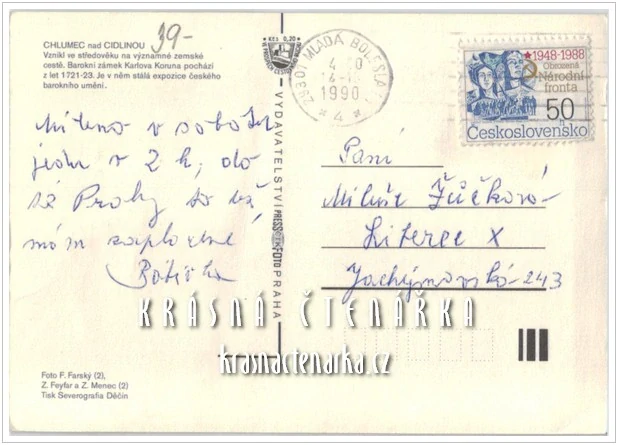 CHLUMEC nad CIDLINOU
Vznikl ve středověku na významné zemské
cestě. Barokní zámek Karlova Koruna pochází
z let 1721-23. Je v něm stálá expozice českého
barokního umění.
39-
Kčs 0,20
VYDAVATELSTVÍ PRESSFOTO PRAHA
29301 MLADÁ BOLESLAV 1
1990
* 4 *
★1948-1988
Obrozená
Národní
fronta
50
Československo
v sobotu
jedu v 2 h, do
Prahy
mám zaplacené
Paní
Miluše Žůčková
Liberec X
Jáchymovská 243
KRÁSNÁ ČTENÁŘKA
krasnactenarka.cz
Foto F. Farský (2),
Z. Feyfar a Z. Menec (2)
Tisk Severografia Děčín